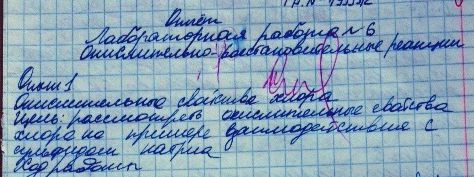 Отчёт
Лабораторная работа №6
Окислительно-восстановительные реакции
Опыт 1
Окислительные свойства хлора
Цель: рассмотреть окислительные свойства
хлора на примере взаимодействия с
сульфидом натрия
Ход работы